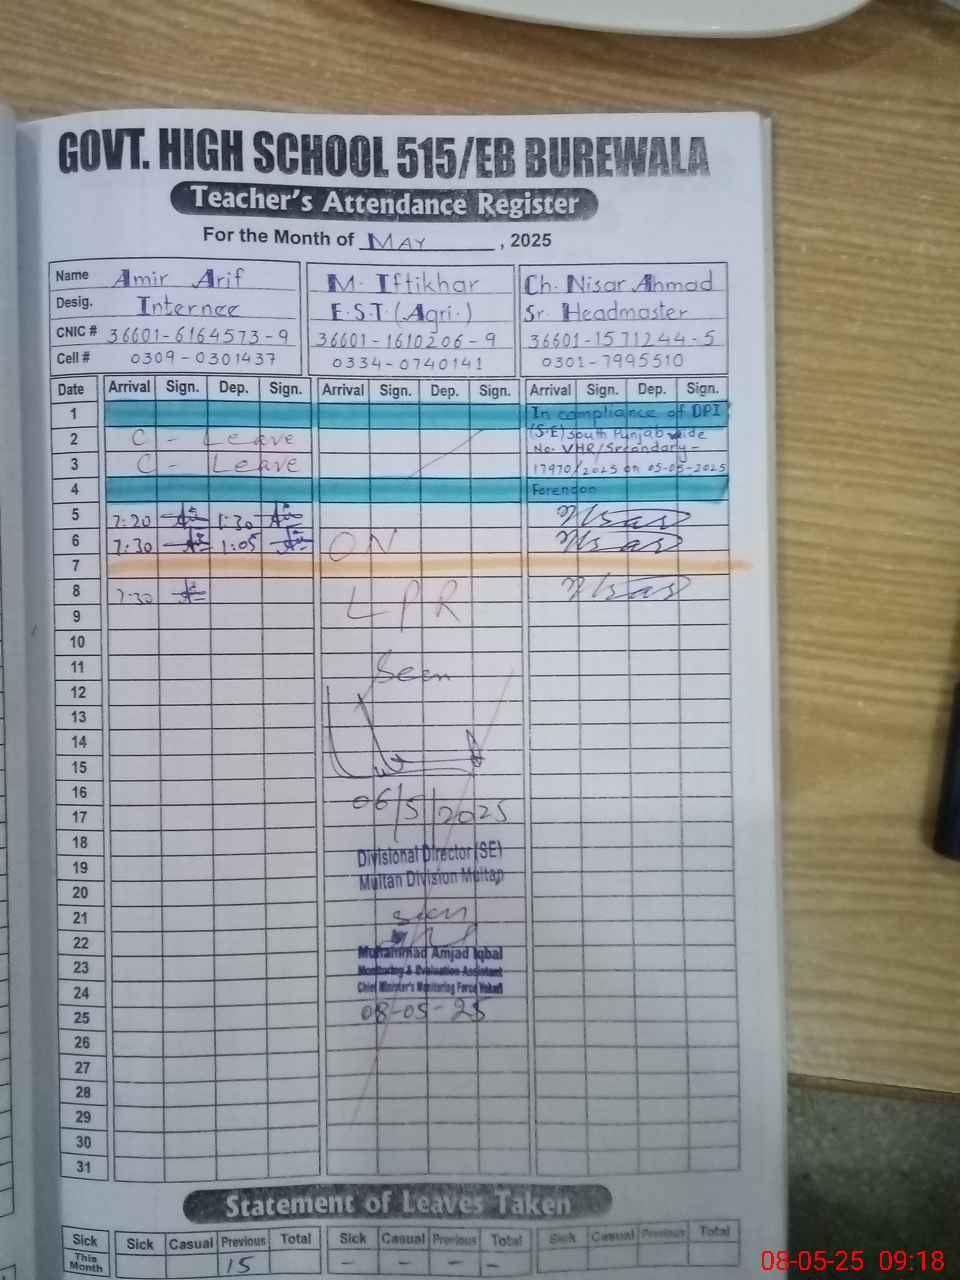 GOVT. HIGH SCHOOL 515/EB BUREWALA
Teacher's Attendance Register
For the Month of MAY , 2025
Name Amir Arif M. Iftikhar Ch. Nisar Ahmad
Desig. Internee E.S.T. (Agri.) Sr. Headmaster
CNIC # 36601-6164573-9 36601-1610206-9 36601-1571244-5
Cell # 0309-0301437 0334-0740141 0301-7995510
Date Arrival Sign. Dep. Sign. Arrival Sign. Dep. Sign. Arrival Sign. Dep. Sign.
1 In compliance of DPI
2 C - Leave (S.E) South Punjab vide
No. VHR/Secondary-
3 C - Leave 17970/2025 on 05-05-2025
4 Forenoon
5 7:20 1:30
6 7:30 1:05 ON
7
8 7:30 LPR
9
10
11 Seen
12
13
14
15
16 06/5/2025
17
18 Divisional Director (SE)
19 Multan Division Multan
20
21 seen
22
23 Muhammad Amjad Iqbal
Monitoring & Evaluation Assistant
24 Chief Minister's Monitoring Force Vehari
25 08-05-25
26
27
28
29
30
31
Statement of Leaves Taken
Sick Sick Casual Previous Total Sick Casual Previous Total Sick Casual Previous Total
This Month 15 - - - -
08-05-25 09:18